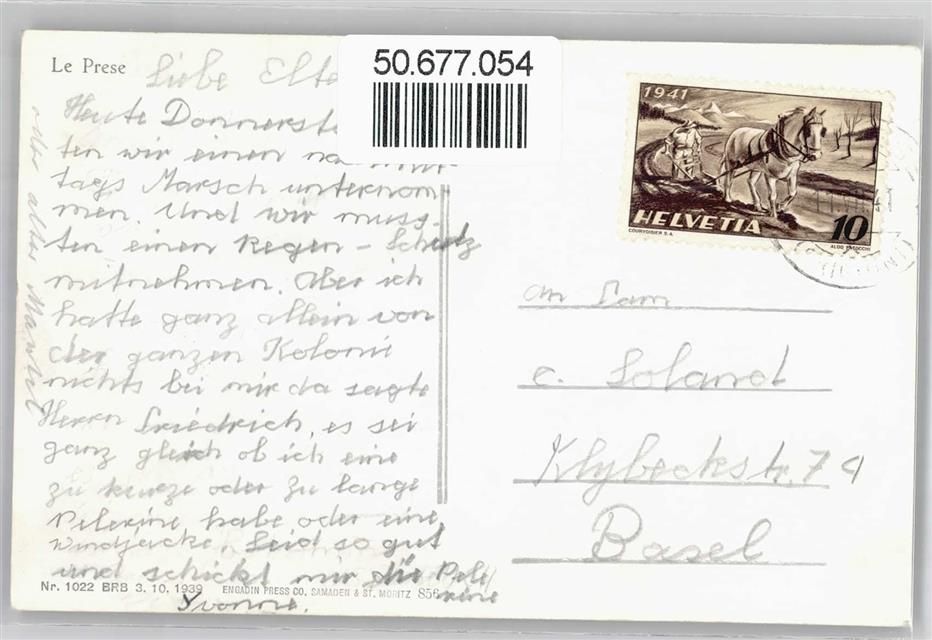 Le Prese
50.677.054
Liebe Elte
Heute Donnerst
ten wir einen
tags Marsch unternom
men. Und wir muss-
ten einen Regen-Schutz
mitnehmen. Aber ich
hatte ganz allein von
der ganzen Kolonii
nichts bei mir da sagte
Herrn Friedrich, es sei
ganz gleich ob ich eine
zu kurze oder zu lange
Pelerine, habe oder eine
Windjacke. Seid so gut
und schickt mir die Pele
rine
Yvonne.
alter Mantel
1941
HELVETIA
10
COURVOISIER S.A.
An Fam
C. Soland
Klybeckstr. 74
Basel
Nr. 1022 BRB 3. 10. 1939 ENGADIN PRESS CO. SAMADEN & ST. MORITZ 856